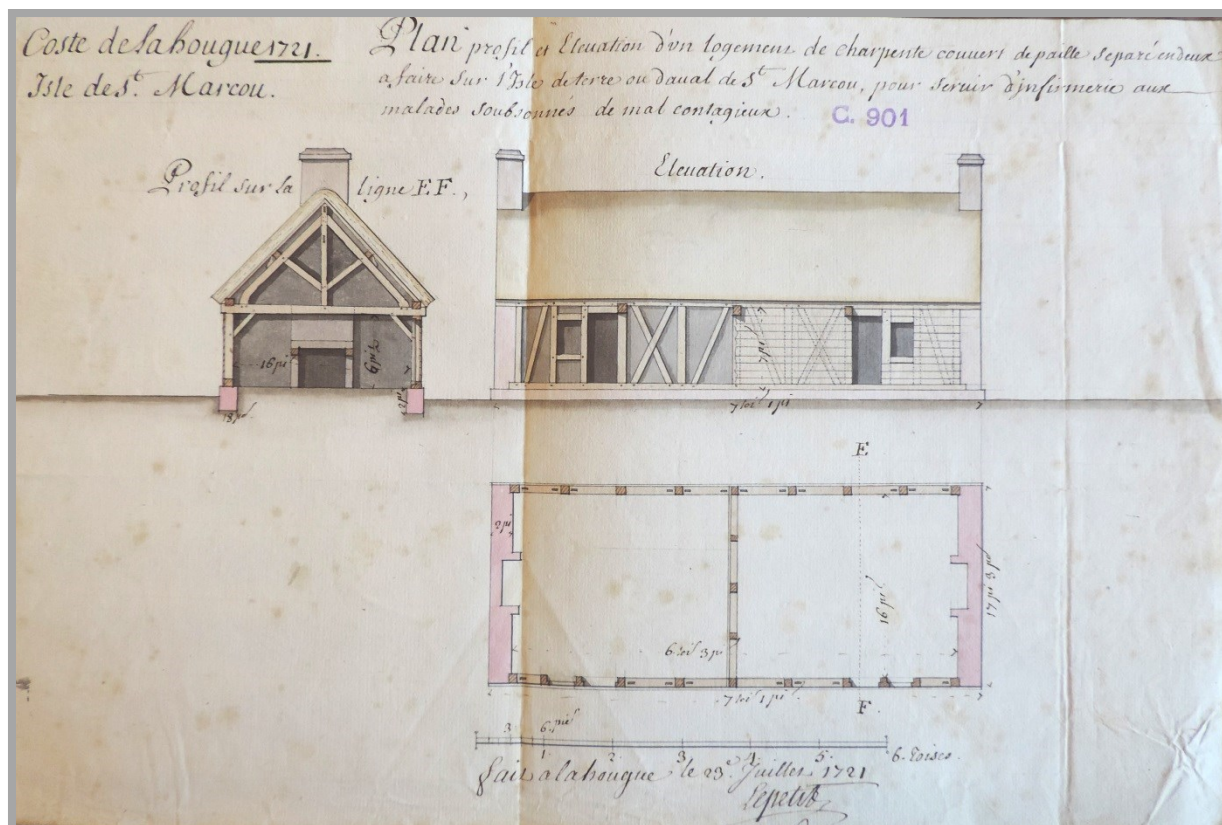 Coste de la hougue 1721.
Isle de St. Marcou.
Plan profil et Elevation d'vn logement de charpente couvert de paille separé en deux
a faire sur l'Isle de terre ou daual de St. Marcou, pour seruir d'infirmerie aux
malades soubsonnés de mal contagieux.
C. 901
Profil sur la ligne E.F.,
Elevation.
16 pi
2 pi
7 pi
7 toi 1 pi
E
2 pi
16 pi
17 pi 3 po
6 toi 3 pi
7 toi 1 pi
F.
3 6 pie
1 2 3 4 5 6. toises
fait a la hougue le 23e. Juillet 1721
Lepetit